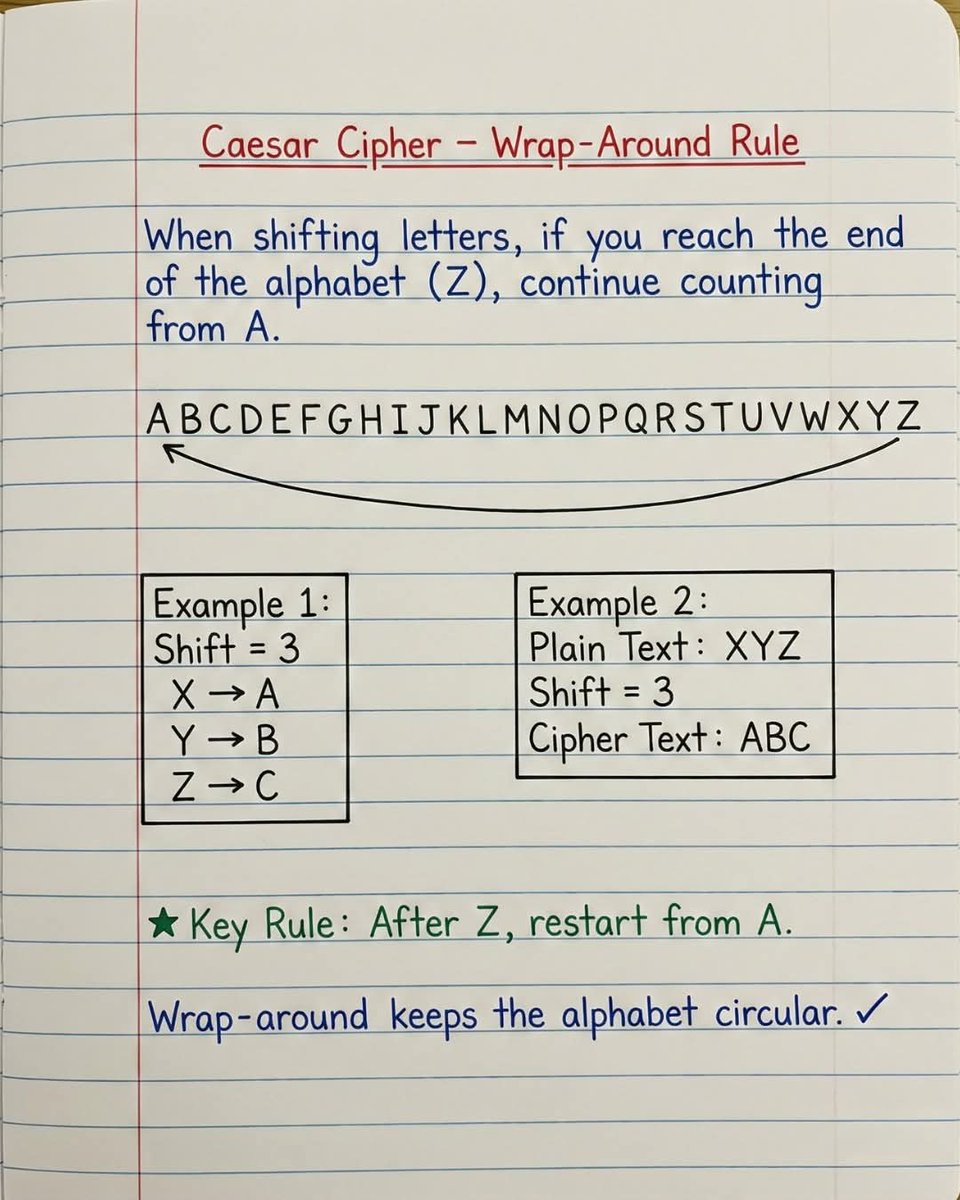 Caesar Cipher – Wrap-Around Rule
When shifting letters, if you reach the end
of the alphabet (Z), continue counting
from A.
A B C D E F G H I J K L M N O P Q R S T U V W X Y Z
Example 1:
Shift = 3
X → A
Y → B
Z → C
Example 2:
Plain Text: XYZ
Shift = 3
Cipher Text: ABC
★ Key Rule: After Z, restart from A.
Wrap-around keeps the alphabet circular. ✓